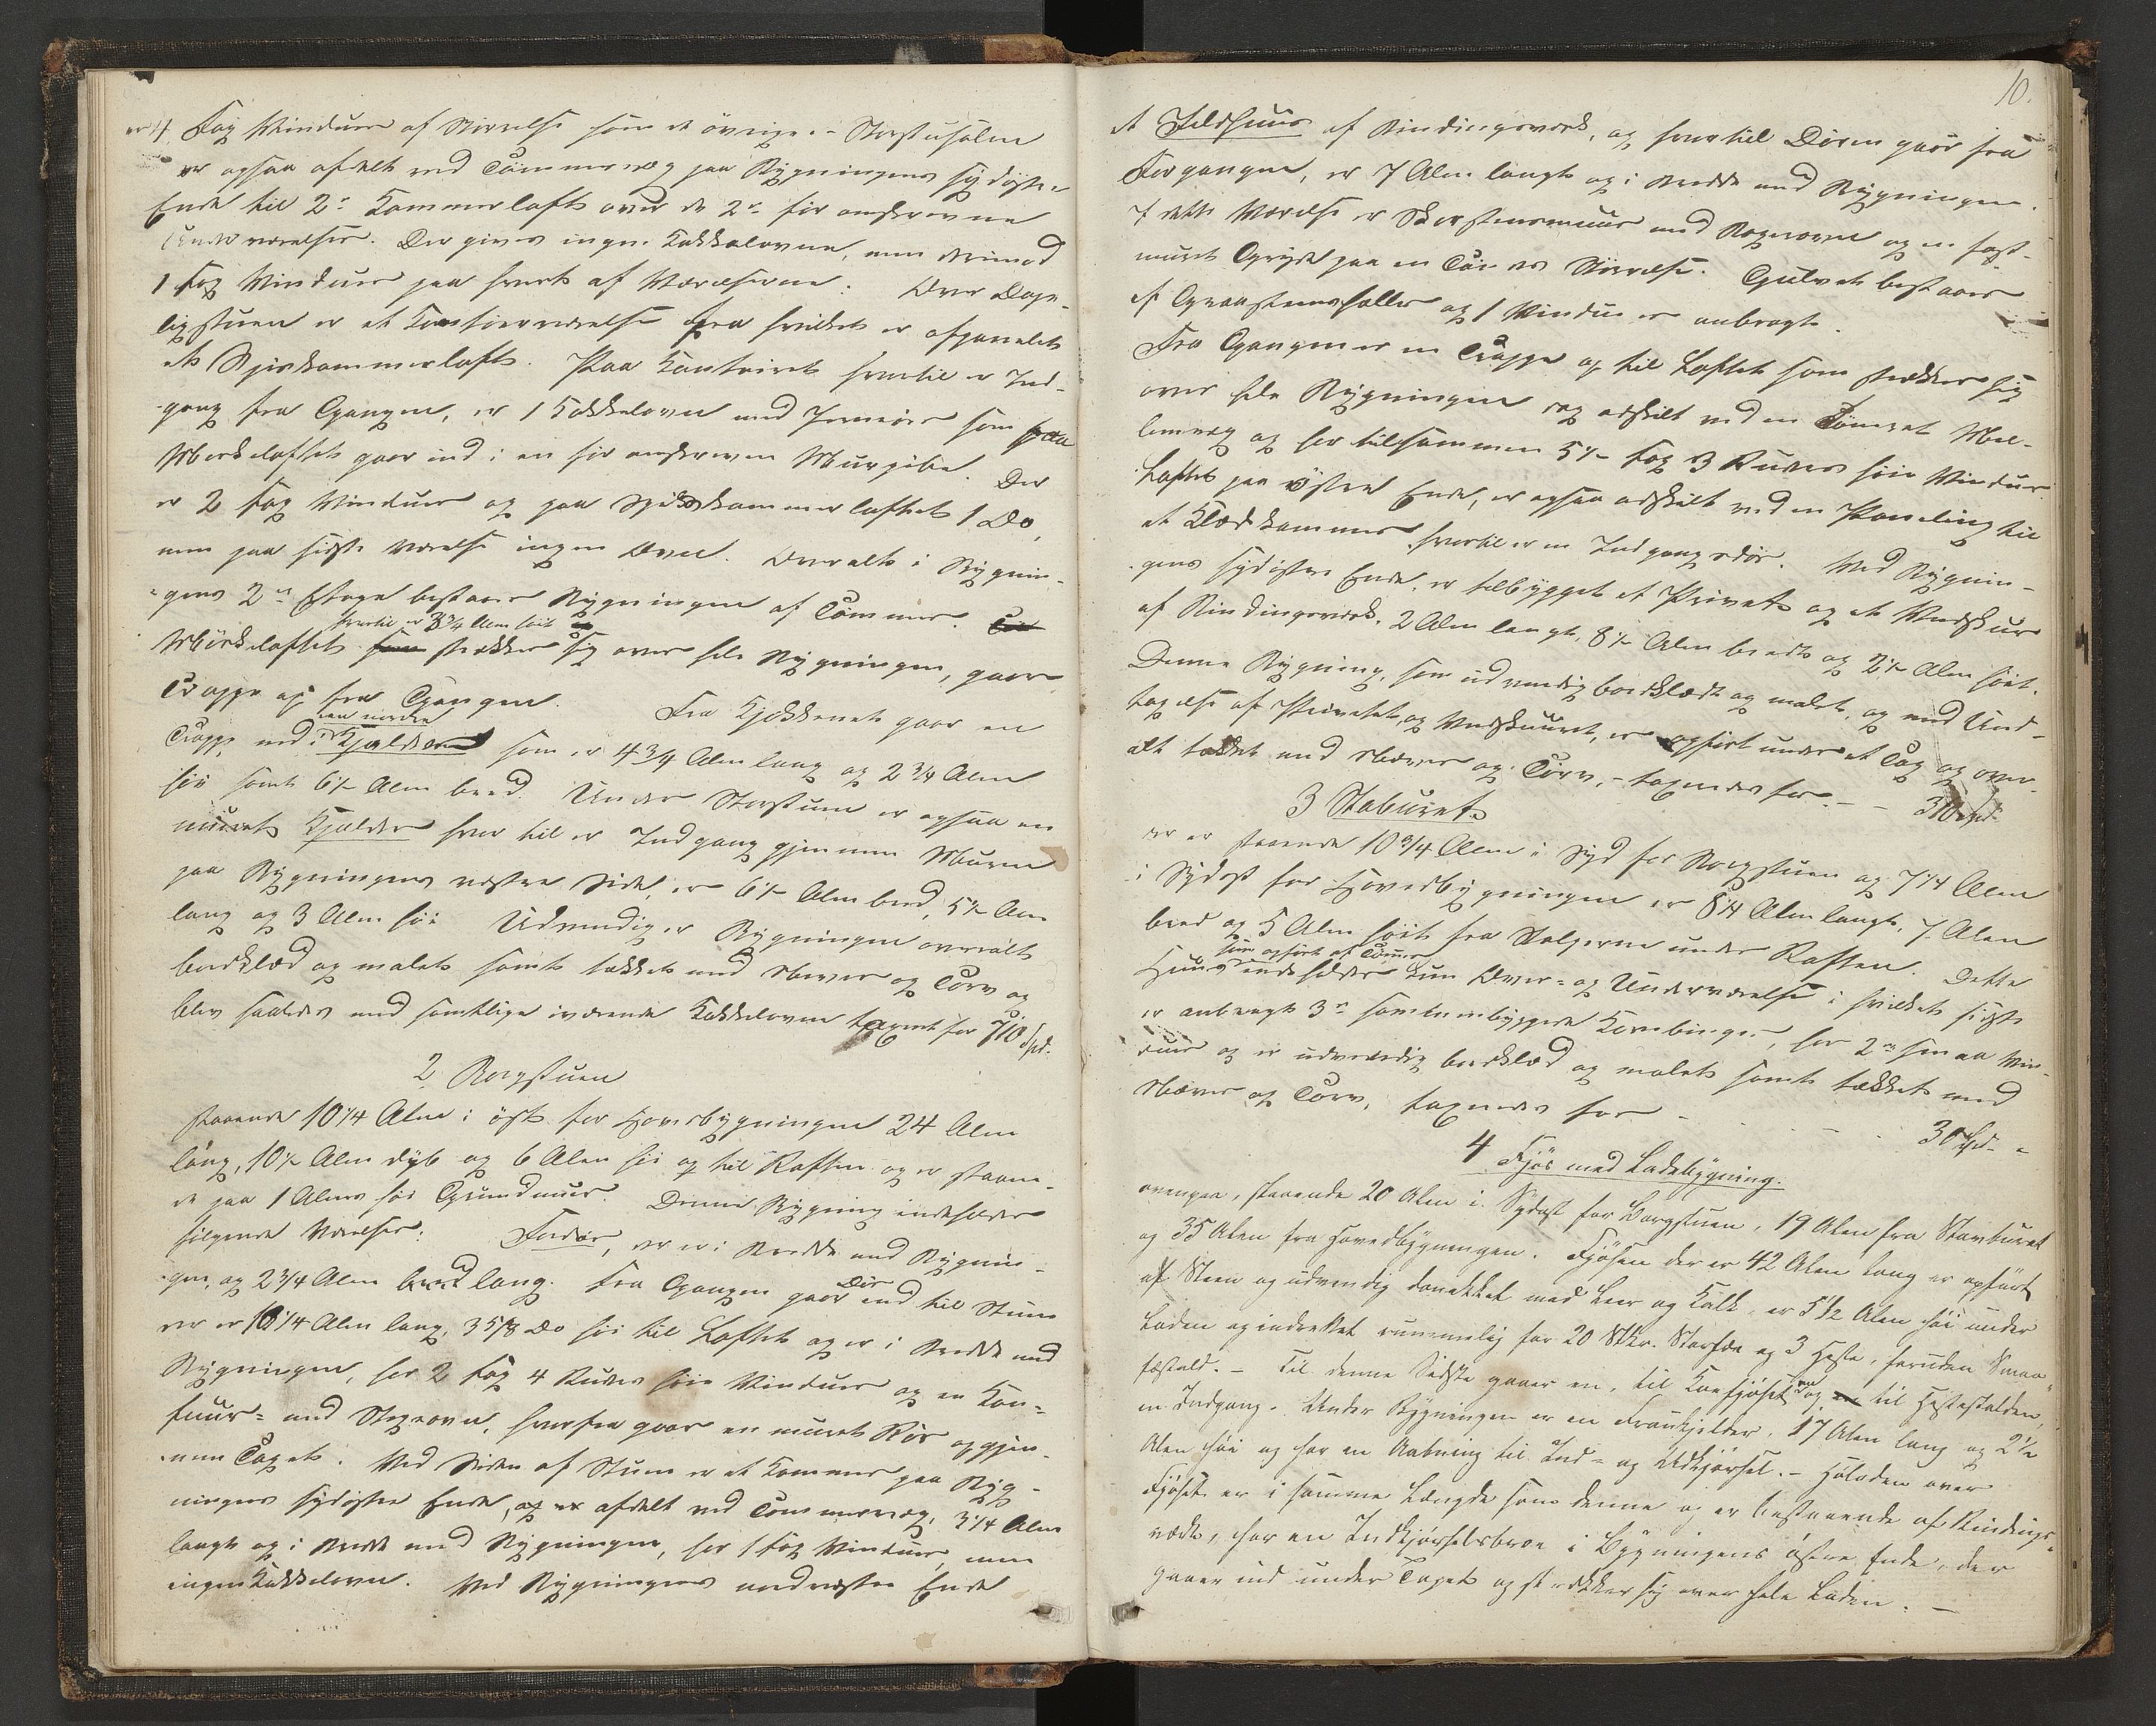 er 4 Fag Vinduer af Størrelse som de øvrige. - Storstuesalen
er ogsaa afdelt ved Tømmervæg paa Bygningens sydøstre
Ende til 2de Kammerlofte over de 2de før anskrevne
Underværelser. Der gives ingen Kakkelovne, men derimod
1 Fag Vinduer paa hvert af Værelserne. Over Dag-
ligstuen er et Contoirværelse fra hvilket er afpanelet
et Spiskammerloft. Paa Kontoiret hvortil er Ind-
gang fra Gangen, er 1 Kakkelovn med Jernrør som paa
Mørkeloftet gaar ind i en før anskreven Murpibe. Der
er 2 Fag Vinduer og paa Spiskammerloftet 1 Do,
men paa sidste Værelse ingen Ovn. Overalt i Bygnin-
gens 2den Etage bestaaer Bygningen af Tømmer.
hvortil er 3 3/4 Alen høit
Mørkeloftet som strækker sig over hele Bygningen, gaaer
Trappe op fra Gangen. Fra Kjøkkenet gaar en
een muret
Trappe ned i Kjælderen som er 4 3/4 Alen lang og 2 3/4 Alen
høi samt 6 1/2 Alen bred. Under Storstuen er ogsaa en
muret Kjælder hvor til er Indgang gjennem Muren
paa Bygningens vestre Side, er 6 1/2 Alen bred, 5 1/2 Alen
lang og 3 Alen høi. Udvendig er Bygningen overalt
bordklæd og malet samt tækket med Næver og Torv og
blev saaledes med samtlige iværende Kakkelovne taxeret for 710 Spd.
2 Borgstuen
staaende 10 1/4 Alen i øst for Hovedbygningen 24 Alen
lang, 10 1/2 Alen dyb og 6 Alen høi op til Raften og er staaen-
de paa 1 Alens høi Grundmur. Denne Bygning indeholder
følgende Værelser: Fordør, der er i Bredde med Bygnin-
gen, og 2 3/4 Alen bred lang. Fra Gangen gaar Dør ind til Stuen
der er 10 1/4 Alen lang, 3 5/8 Do høi til Loftet og er i Bredde med
Bygningen, har 2 Fag 4 Ruders høie Vinduer og en Kom-
fuur- med Stegeovn, hvorfra gaar en muret Rør op gjen-
nem Taget. Ved Siden af Stuen er et Kammer paa Byg-
ningens sydøstre Ende, og er afdelt ved Tømmervæg, 3 1/4 Alen
langt og i Bredde med Bygningen, har 1 Fag Vinduer, men
ingen Kakkelovn. Ved Bygningens nordvestre Ende
10.
et Ildhuus af Bindingsverk, og hvortil Døren gaar fra
Forgangen, er 7 Alen langt og i Bredde med Bygningen.
I dette Værelse er Skorstensmuur med Bagerovn og en fast-
muret Gryde paa en Tønnes Størrelse. Gulvet bestaaer
af Graastensheller og 1 Vindue er anbragt.
Fra Gangen er en Trappe op til Loftet som strækker sig
over hele Bygningen og adskilt ved en Tømret Mel-
lemvæg og har tilsammen 5 1/2 Fag 3 Ruders høie Vinduer.
Loftet paa østre Ende, er ogsaa adskilt ved en Paneling til
et Klædkammer hvortil er en Indgangsdør. Ved Bygnin-
gens sydøstre Ende, er tilbygget et Privet og et Vedskur
af Bindingsverk, 2 Alen langt, 8 1/2 Alen bredt og 2 1/2 Alen høit.
Denne Bygning, som udvendig bordklædt og malet, og med Und-
tagelse af Privetet og Vedskuuret, er opført under et Tag og over-
alt tækket med Næver og Torv, - taxeredes for - - 310 Spd.
3 Staburet
der er staaende 10 3/4 Alen i Syd for Borgstuen og 7 1/4 Alen
i Sydost for Hovedbygningen er 8 1/4 Alen langt, 7 Alen
bred og 5 Alen høit fra Stolperne under Raften. Dette
som opført af Tømmer
Huus indeholder kun Over- og Underværelse i hvilket sidste
er anbragt 3de sammenbyggede Kornbinger, har 2de smaa Vin-
duer og er udvendig bordklæd og malet samt tækket med
Næver og Torv, taxeredes for - - - 30 Spd. -
4 Fjøs med Ladebygning.
ovenpaa, staaende 20 Alen i Sydost for Borgstuen, 19 Alen fra Stauburet
og 35 Alen fra Hovedbygningen. Fjøsen der er 42 Alen lang er opført
af Steen og udvendig dmekket med Leer og Kalk, er 5 1/2 Alen høi under
Laden og indrettet rummelig for 20 Stkr. Storfæ og 3 Heste, foruden Smaa-
fæstald. - Til denne Sidste gaaer en, til Koefjøset en og til Hestestalden
en Indgang. Under Bygningen er en Frankjelder, 17 Alen lang og 2 1/2
Alen høi og har en Aabning til Ind- og Udkjørsel. - Høladen over
Fjøset er i samme Længde som denne og er bestaaende af Bindings-
værk, har en Indkjørselsbroe i Bygningens østre Ende, der
gaaer ind under Taget og strækker sig over hele Laden. -